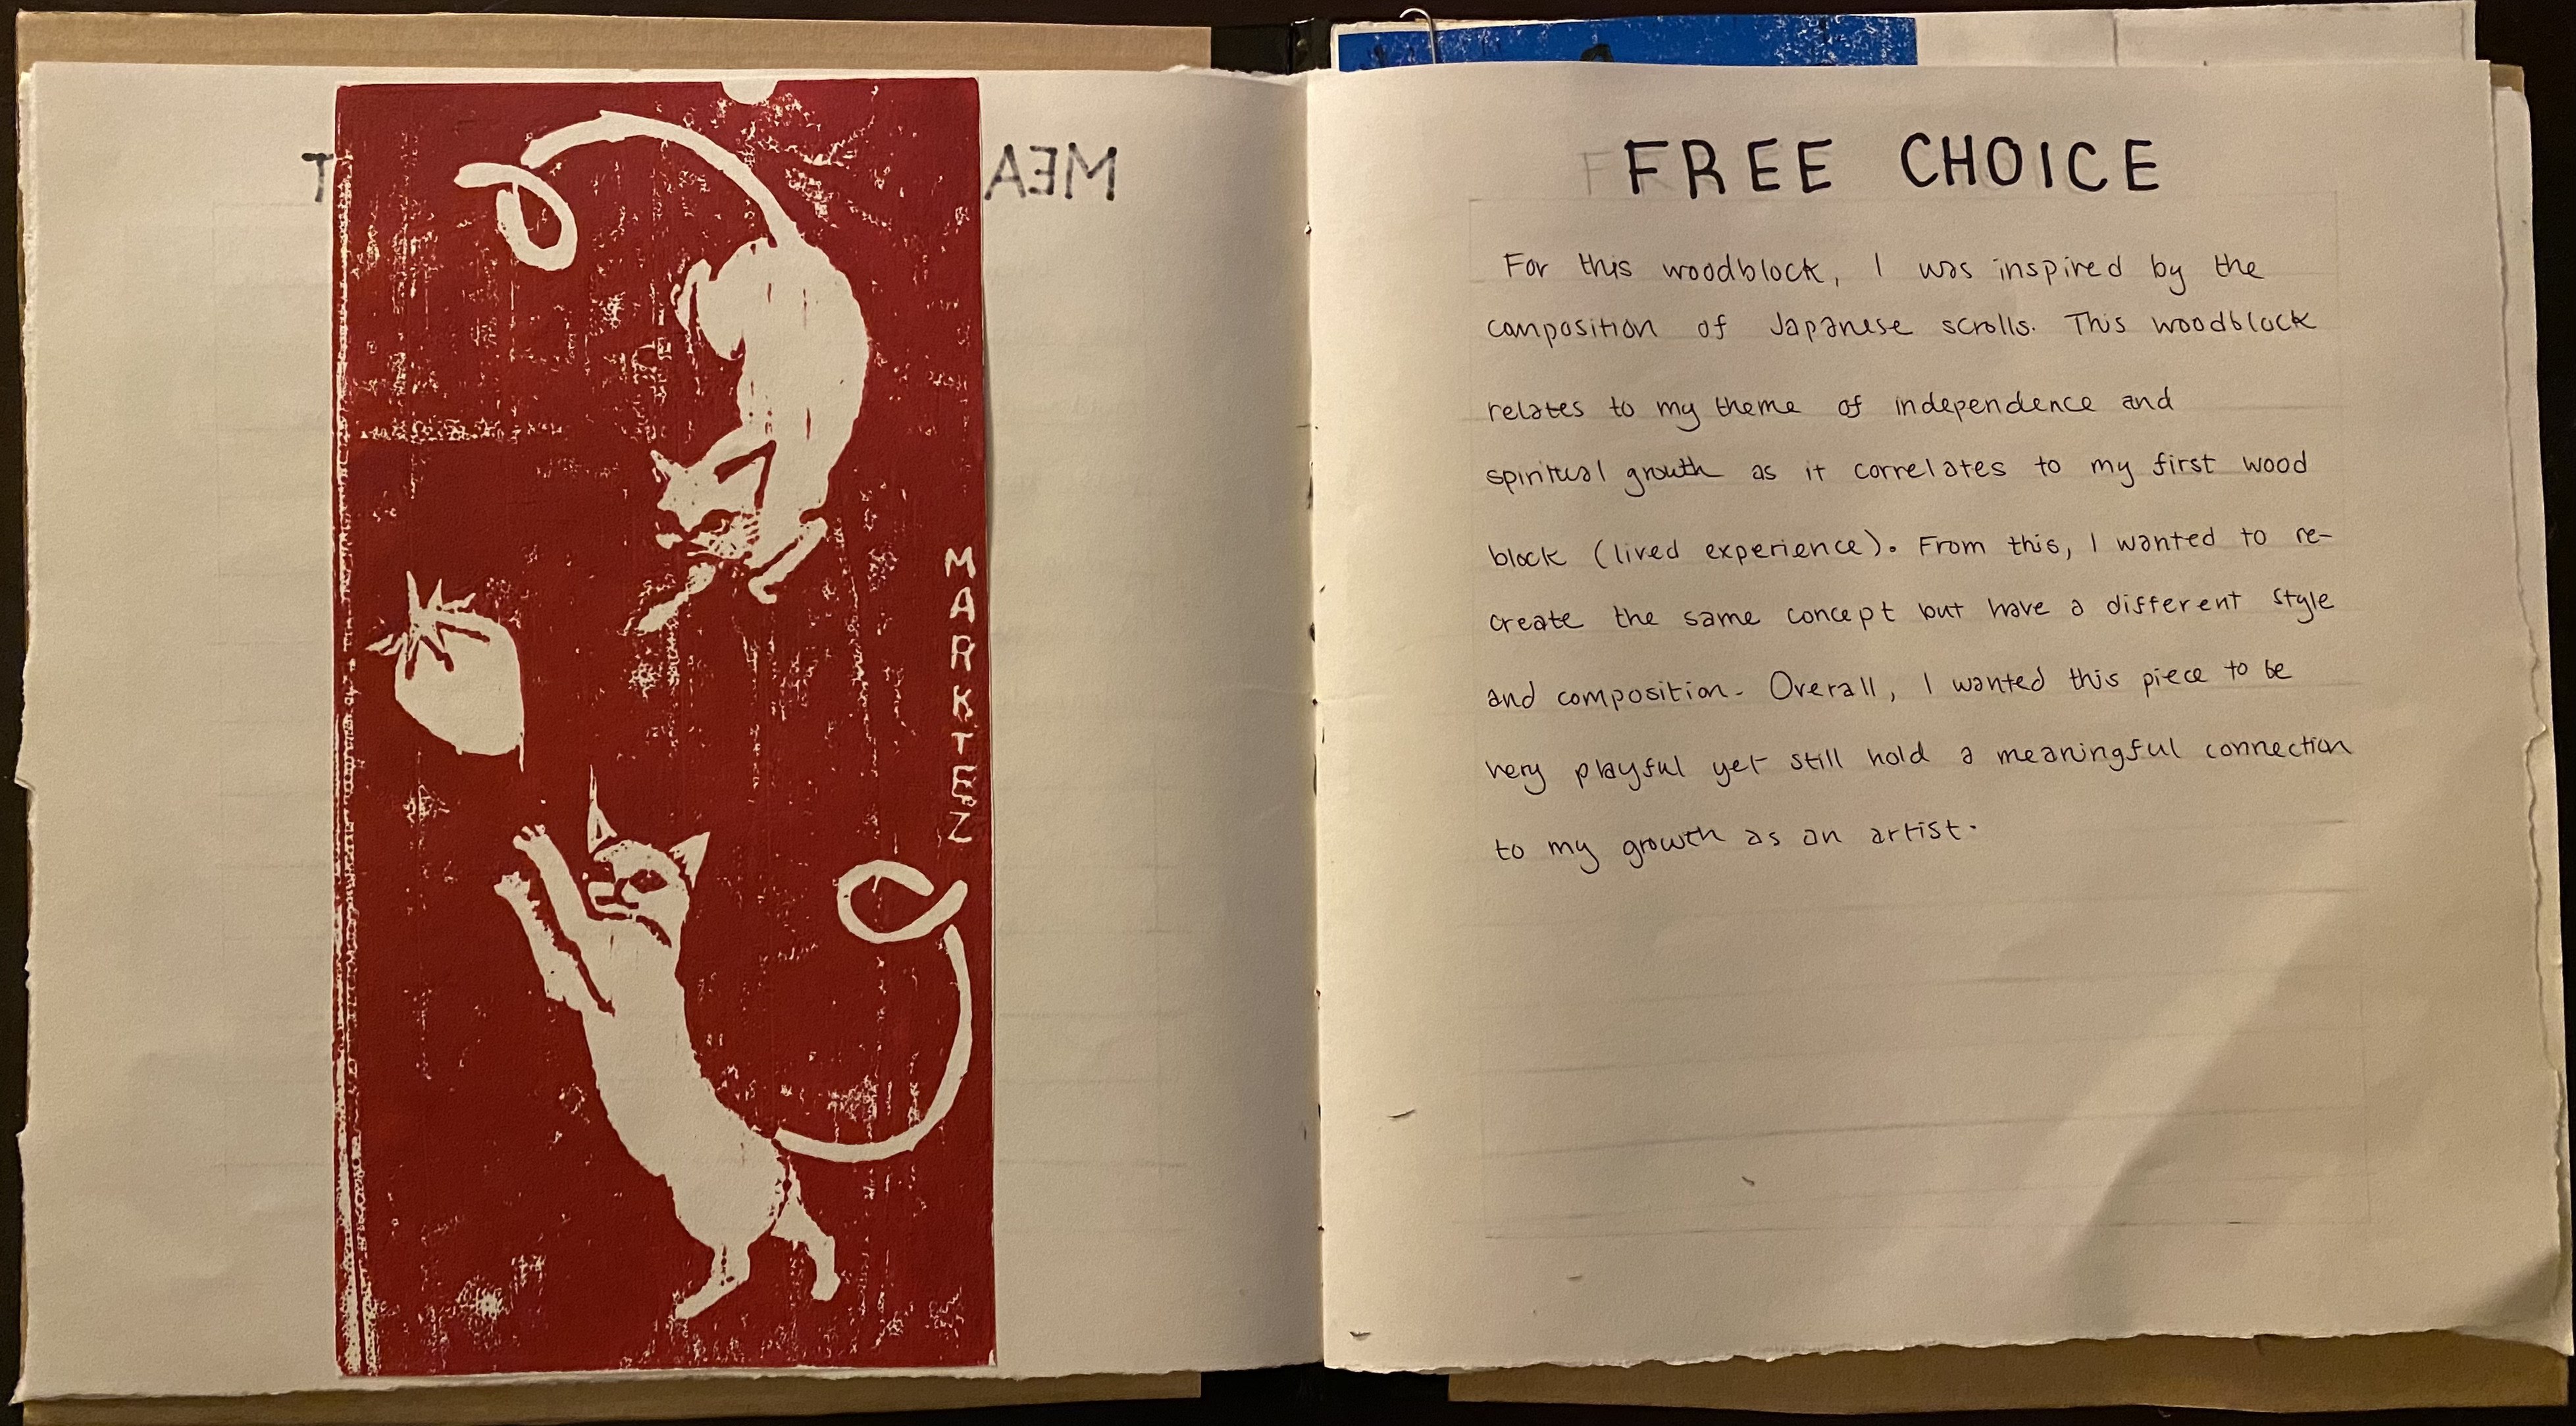 MEA T
MARKTEZ
FREE CHOICE
For this woodblock, I was inspired by the
composition of Japanese scrolls. This woodblock
relates to my theme of independence and
spiritual growth as it correlates to my first wood
block (lived experience). From this, I wanted to re-
create the same concept but have a different style
and composition. Overall, I wanted this piece to be
very playful yet still hold a meaningful connection
to my growth as an artist.